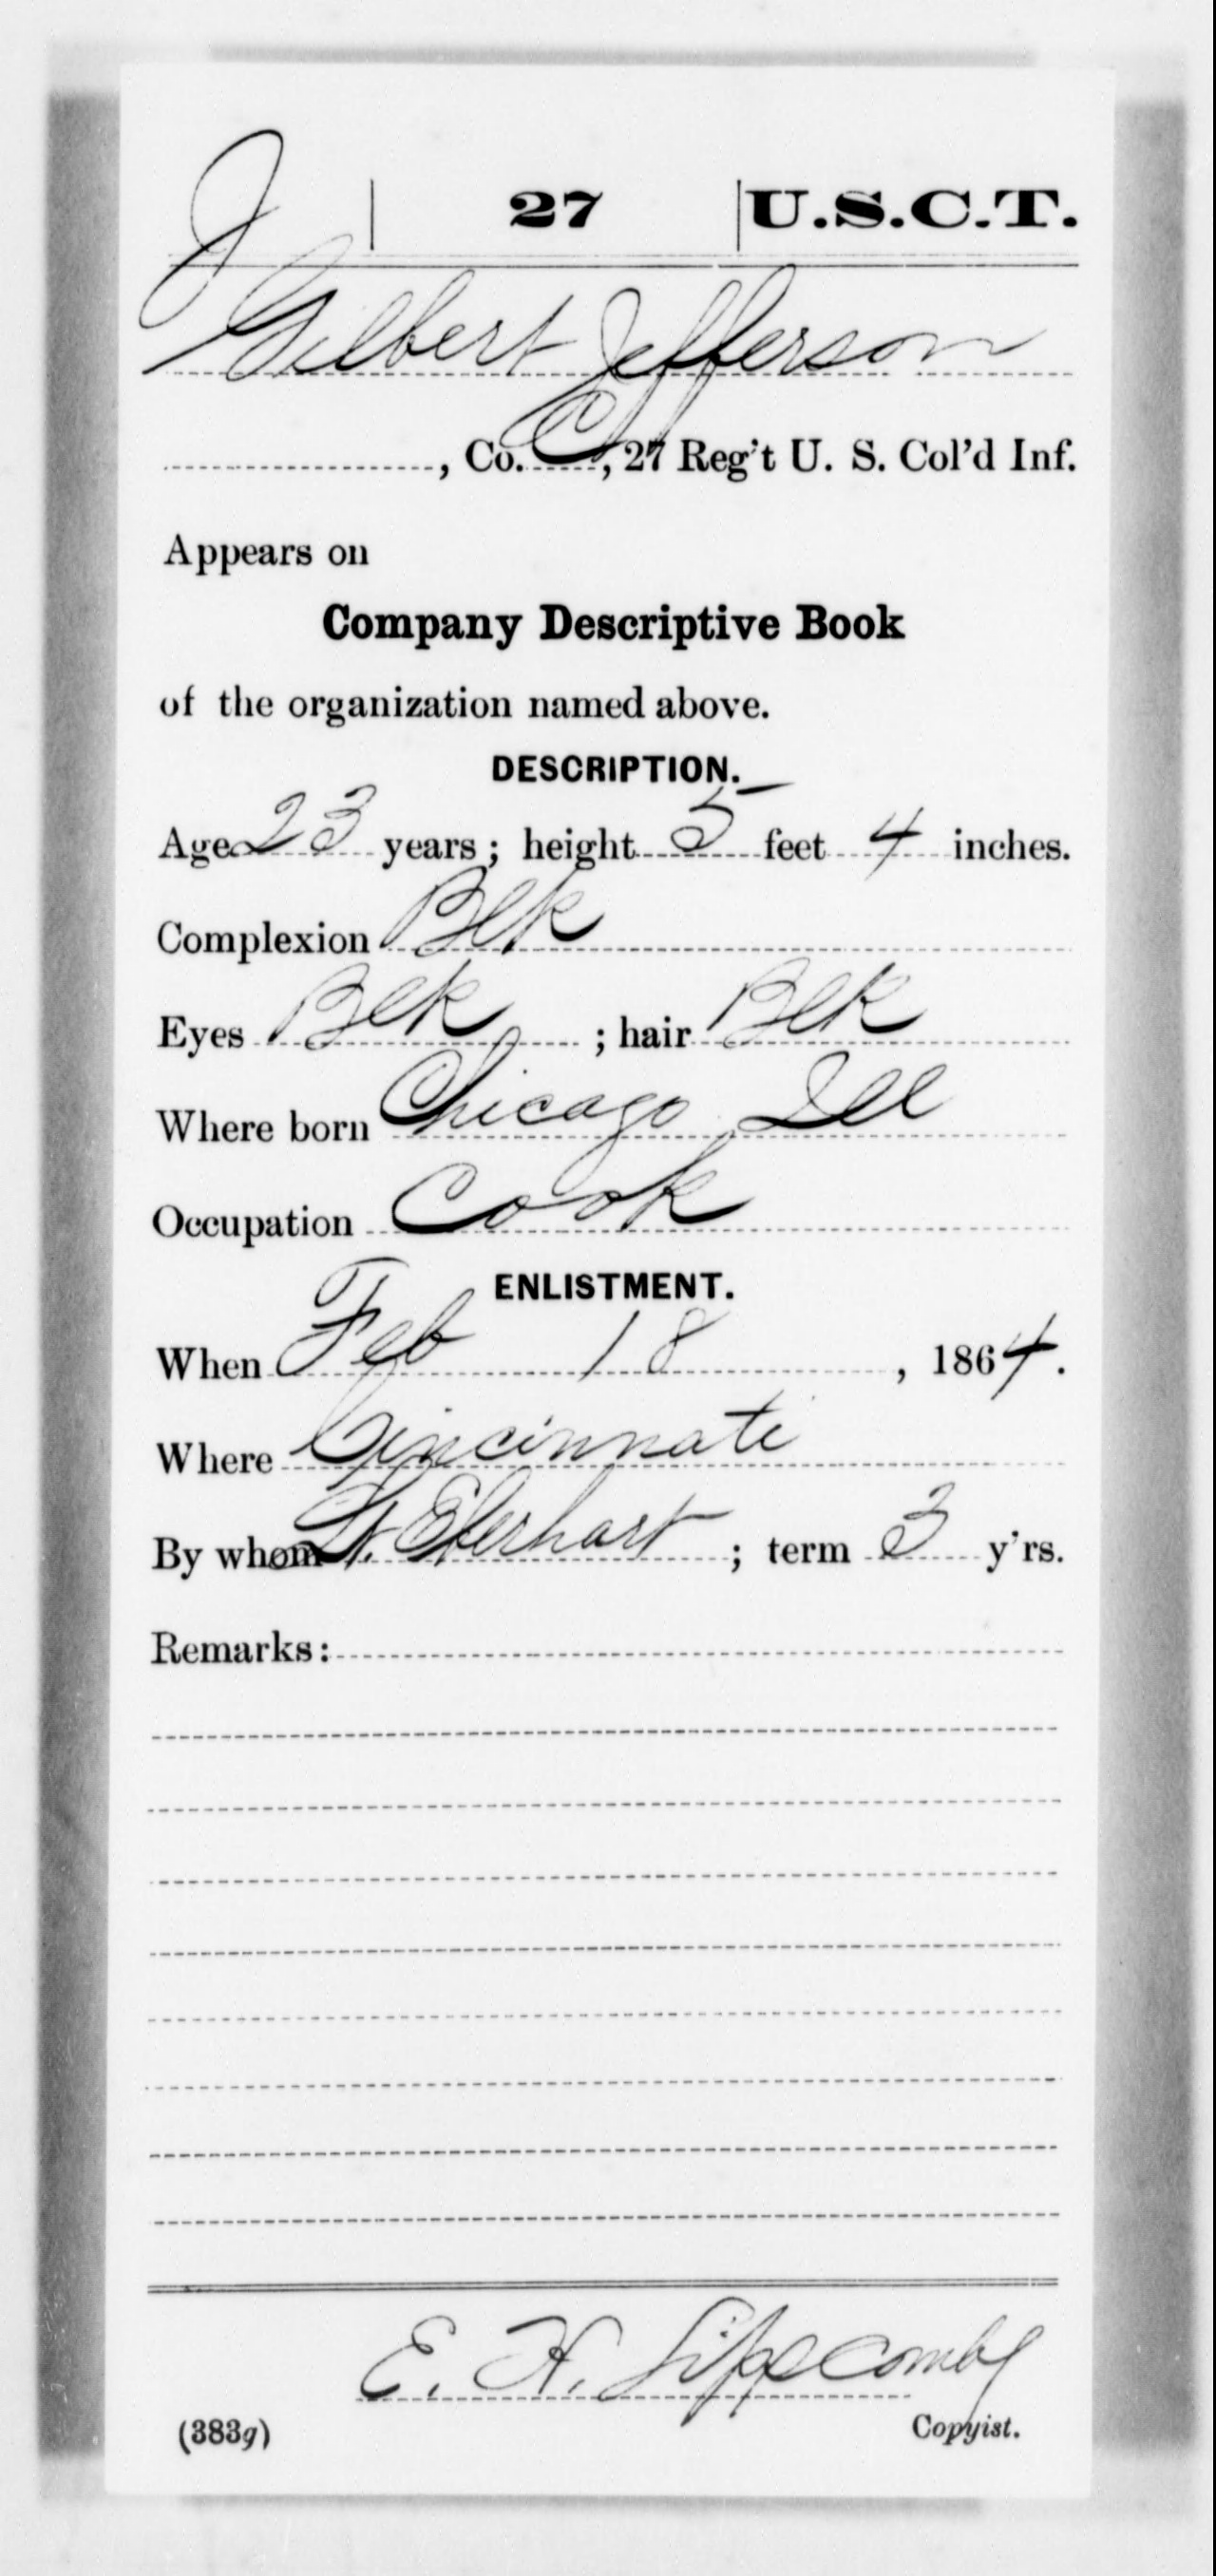 J | 27 | U.S.C.T.
Gilbert Jefferson
, Co. C, 27 Reg't U. S. Col'd Inf.
Appears on
Company Descriptive Book
of the organization named above.
DESCRIPTION.
Age 23 years; height 5 feet 4 inches.
Complexion Blk
Eyes Blk ; hair Blk
Where born Chicago Ill
Occupation Cook
ENLISTMENT.
When Feb 18, 1864.
Where Cincinnati
By whom Lt. Eberhart ; term 3 y'rs.
Remarks:
E. H. Lipscomb
(383g) Copyist.